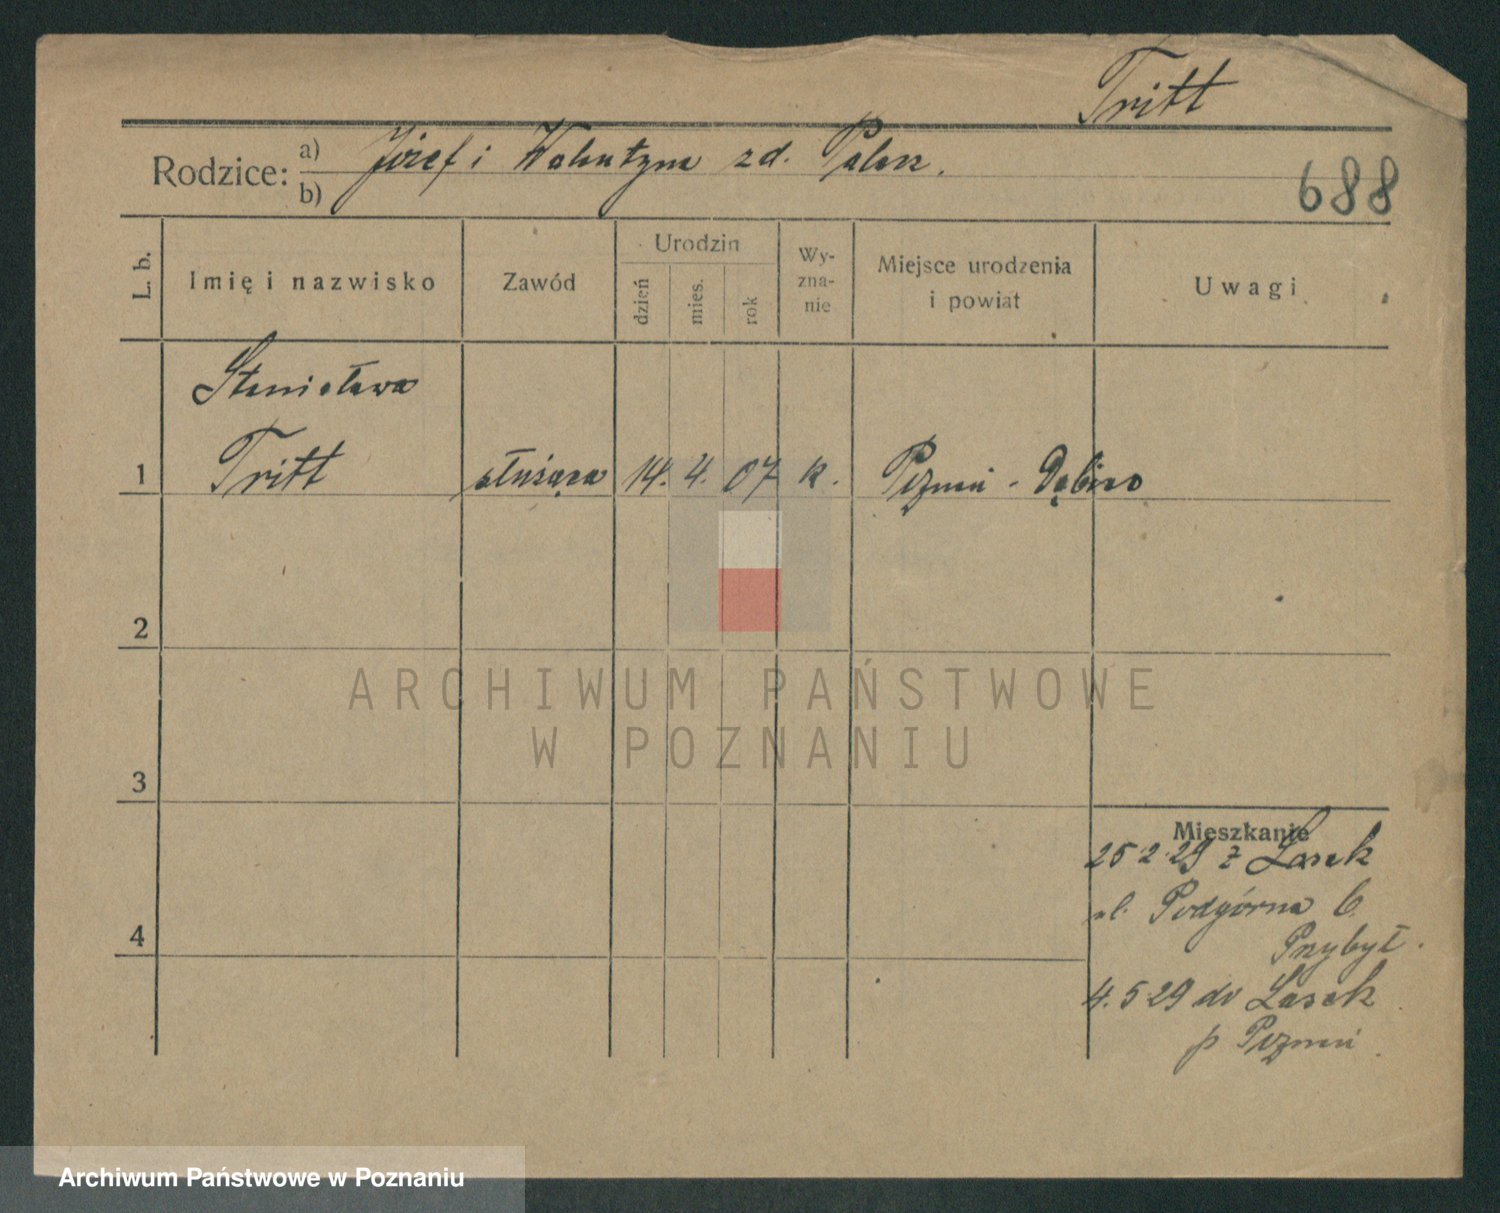 Tritt
Rodzice: a) Józef i Walentyna zd. Palacz.
b)
688
L. b.
Imię i nazwisko
Zawód
Urodzin
dzień
mies.
rok
Wy-
zna-
nie
Miejsce urodzenia
i powiat
Uwagi
Stanisława
1 Tritt służąca 14. 4. 07 k. Poznań - Dębiec
2
3
4
Mieszkanie
25 2. 29 z Lasek
ul. Podgórna 6.
Przybył.
4. 5 29 do Lasek
p Poznań
ARCHIWUM PAŃSTWOWE
W POZNANIU
Archiwum Państwowe w Poznaniu